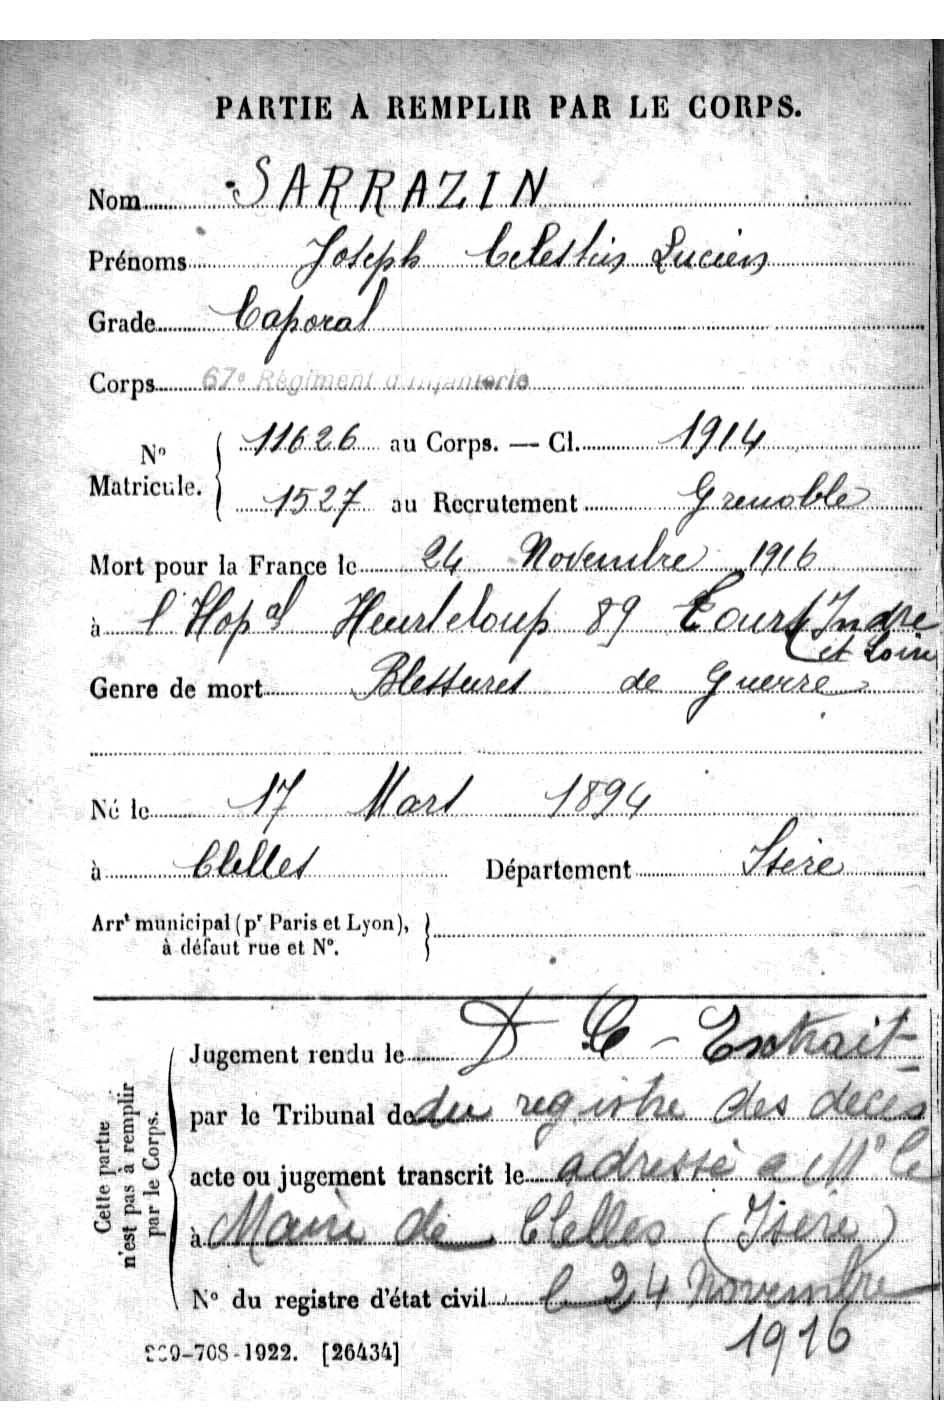 PARTIE À REMPLIR PAR LE CORPS.
Nom SARRAZIN
Prénoms Joseph Celestin Lucien
Grade Caporal
Corps 67e Régiment d'Infanterie
N° Matricule. { 11626 au Corps. — Cl. 1914
1527 au Recrutement Grenoble
Mort pour la France le 24 Novembre 1916
à l'Hopal Heurteloup 89 Tours (Indre
et Loire
Genre de mort Blessures de Guerre
Né le 17 Mars 1894
à Clelles Département Isère
Arrt municipal (pr Paris et Lyon),
à défaut rue et N°. }
Cette partie n'est pas à remplir par le Corps.
Jugement rendu le D C - Extrait
par le Tribunal de du registre des décès
acte ou jugement transcrit le adressé a Mr le
à Maire de Clelles (Isère)
N° du registre d'état civil le 24 Novembre
1916
-708-1922. [26434]